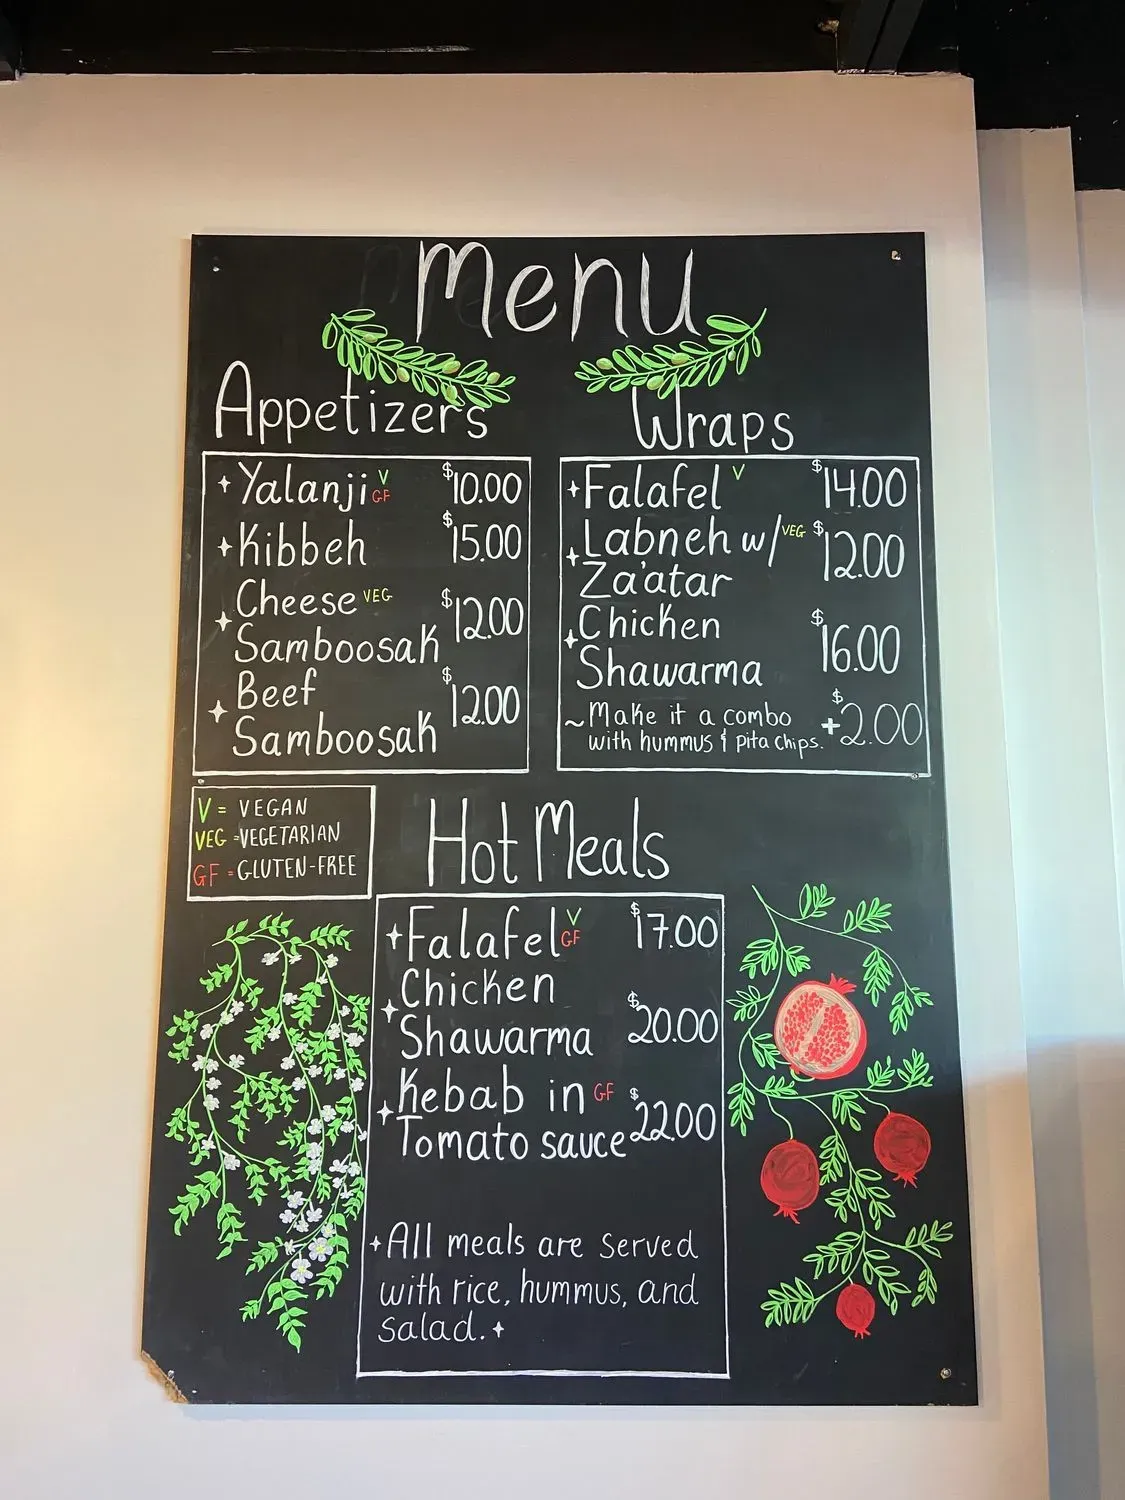 Menu
Appetizers
Yalanji V GF $10.00
Kibbeh $15.00
Cheese VEG
Samboosak $12.00
Beef
Samboosak $12.00
Wraps
Falafel V $14.00
Labneh w/ VEG $12.00
Za'atar
Chicken
Shawarma $16.00
~Make it a combo
with hummus & pita chips. +$2.00
V = VEGAN
VEG = VEGETARIAN
GF = GLUTEN-FREE
Hot Meals
Falafel V GF $17.00
Chicken
Shawarma $20.00
Kebab in GF
Tomato sauce $22.00
All meals are served
with rice, hummus, and
salad.